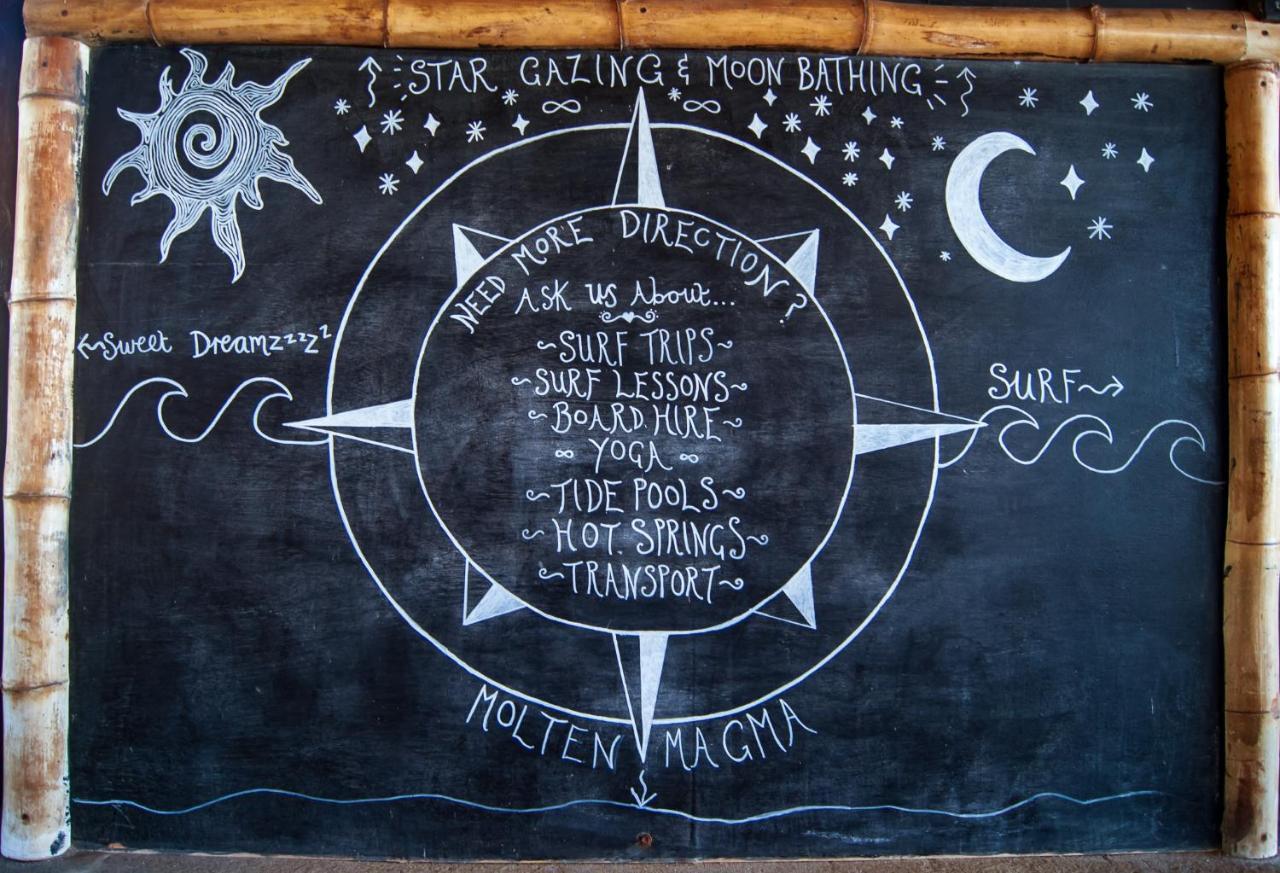 STAR GAZING & MOON BATHING
NEED MORE DIRECTION?
ASK us About...
~SURF TRIPS~
~SURF LESSONS~
~BOARD HIRE~
∞ YOGA ∞
~TIDE POOLS~
~HOT SPRINGS~
~TRANSPORT~
Sweet Dreamzzzzz
SURF
MOLTEN MAGMA